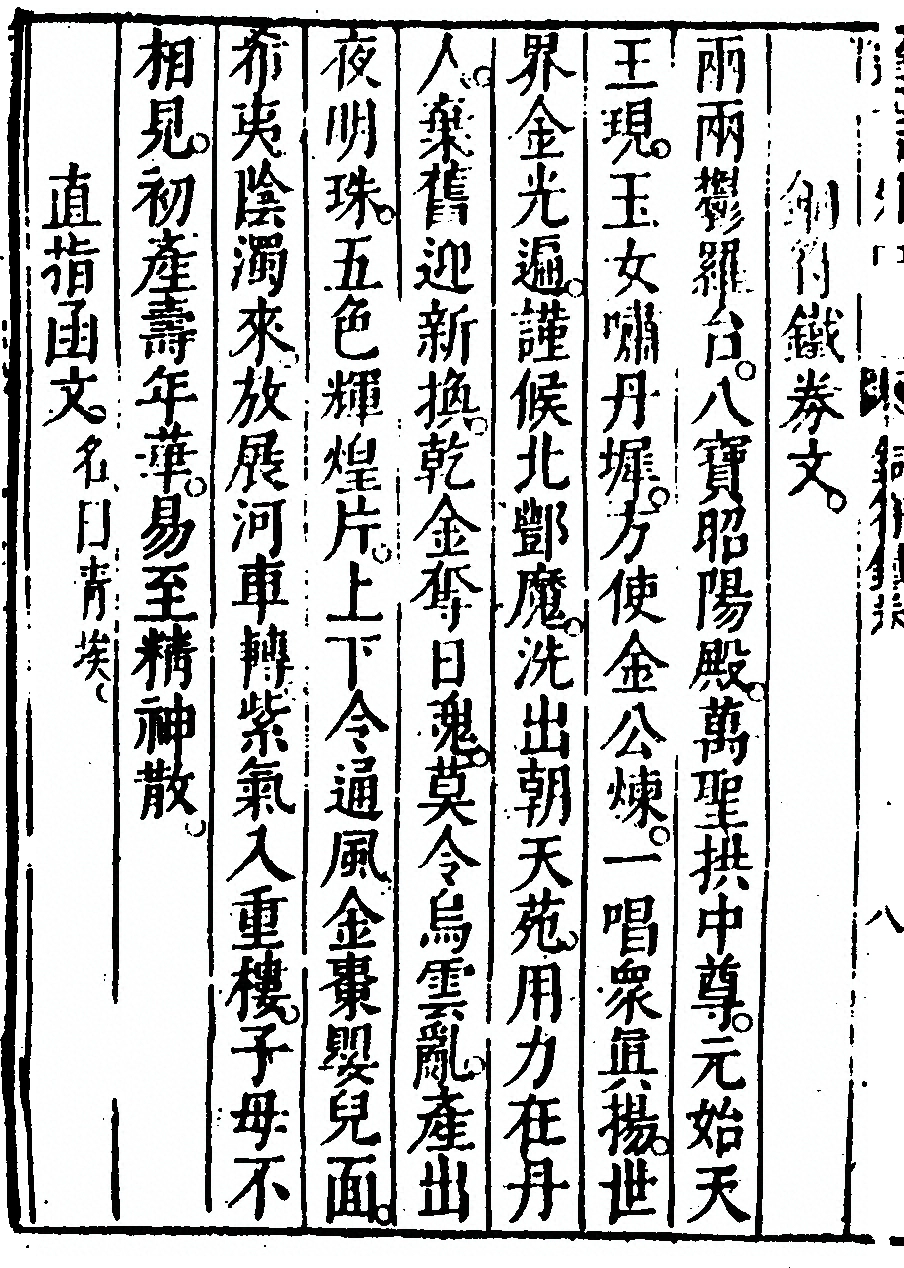 銅符鐵券文。
兩兩鬱羅台。八寶昭陽殿。萬聖拱中尊。元始天
王現。玉女嘯丹墀。方使金公煉。一唱衆眞揚。世
界金光遍。謹候北酆魔。洗出朝天苑。用力在丹
人。棄舊迎新換。乾金奪日䰟。莫令烏雲亂。產出
夜明珠。五色輝煌片。上下令通風。金棗嬰兒面。
希夷陰濁來。放展河車轉。紫氣入重樓。子母不
相見。初產壽年華。易至精神散。
直指函文。名曰青埃、